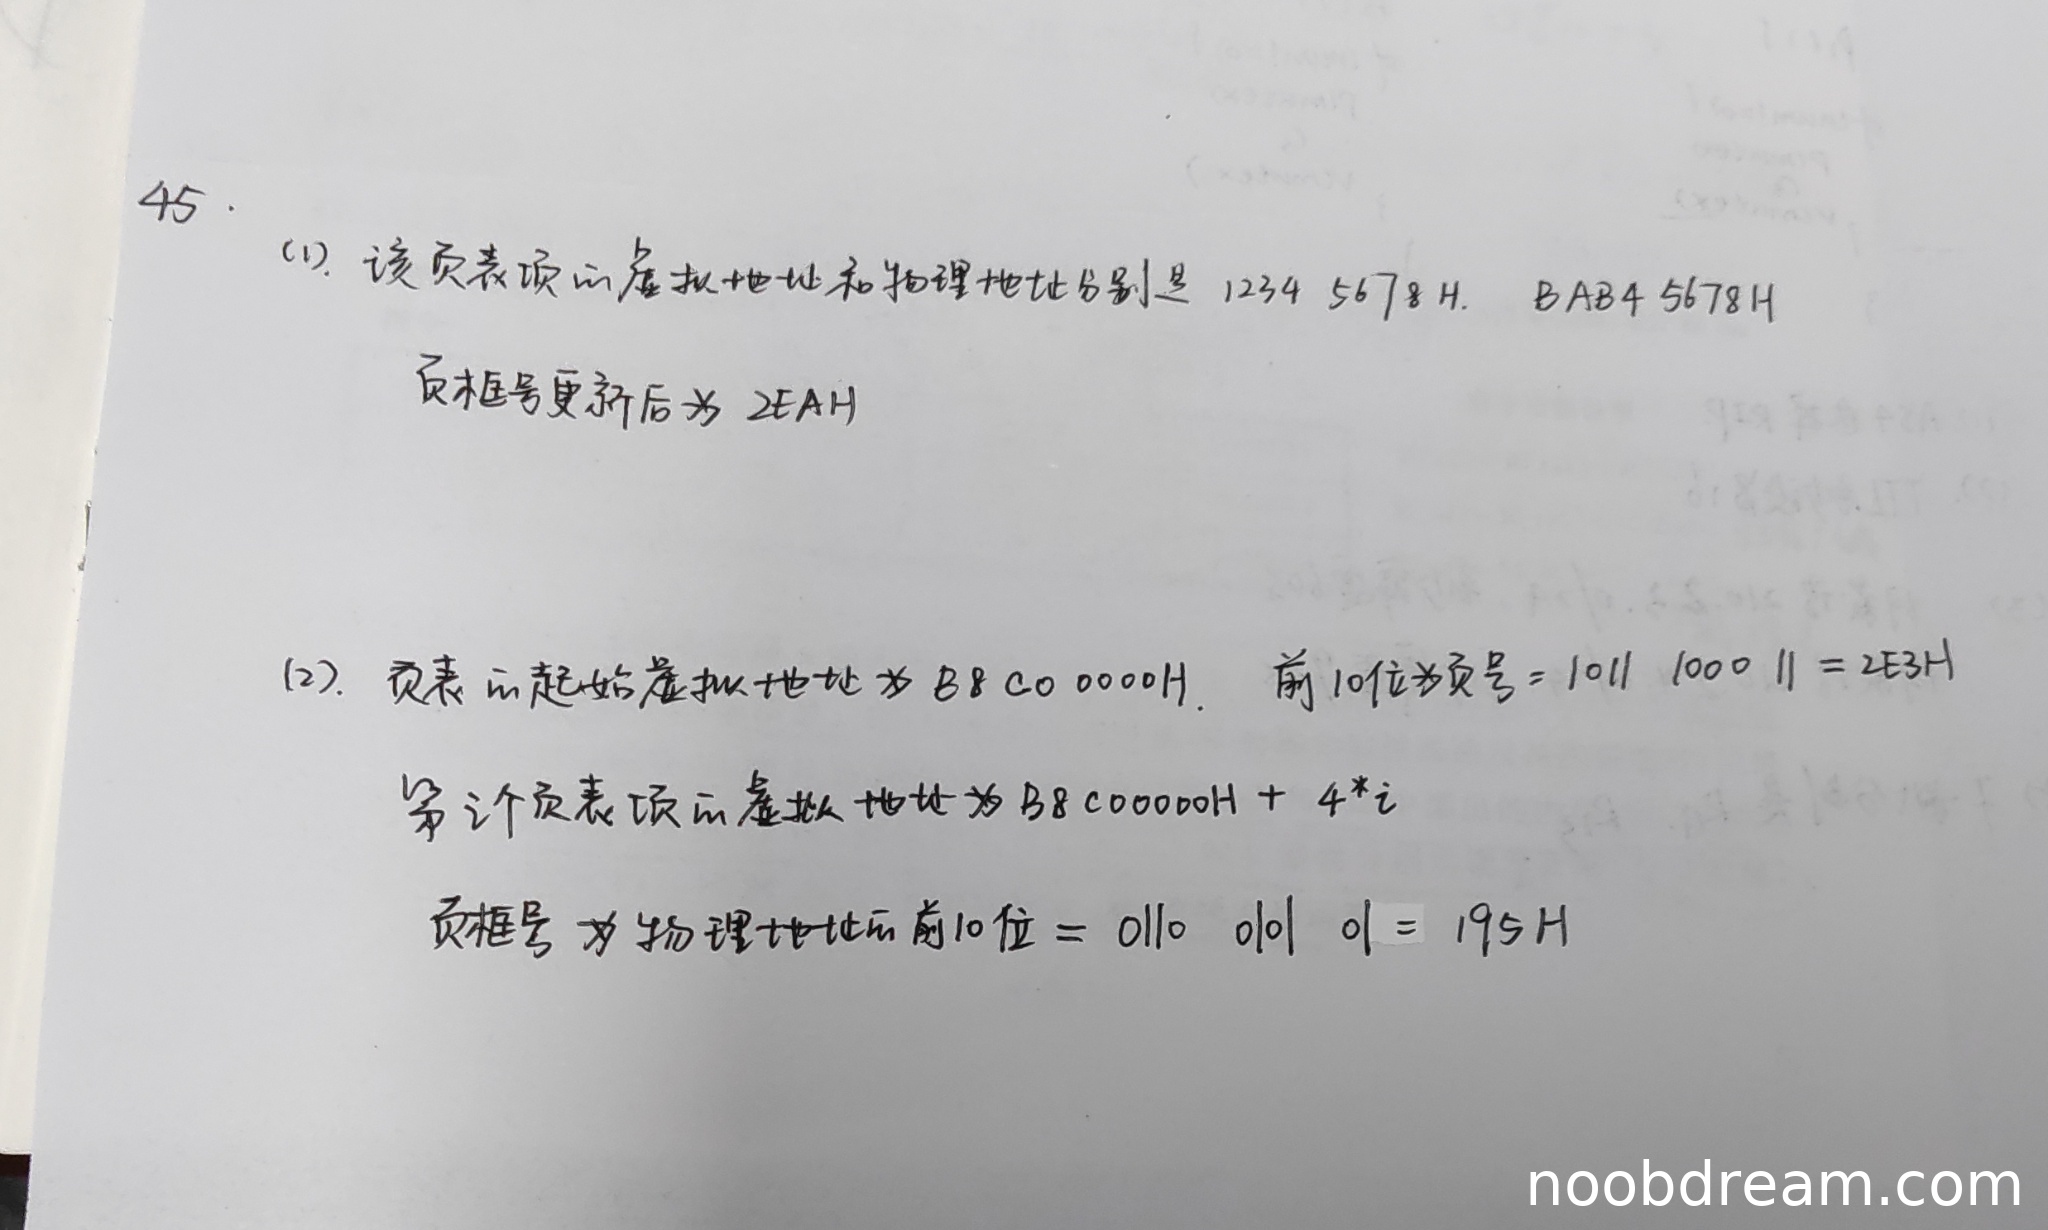 45.
(1). 该页表项的虚拟地址和物理地址分别是 1234 5678H. BAB4 5678H
页框号更新后为 2EAH
(2). 页表的起始虚拟地址为 B8 C0 0000H. 前10位为页号 = 1011 1000 11 = 2E3H
第i个页表项的虚拟地址为 B8C00000H + 4*i
页框号为物理地址的前10位 = 0110 0101 01 = 195H
noobdream.com